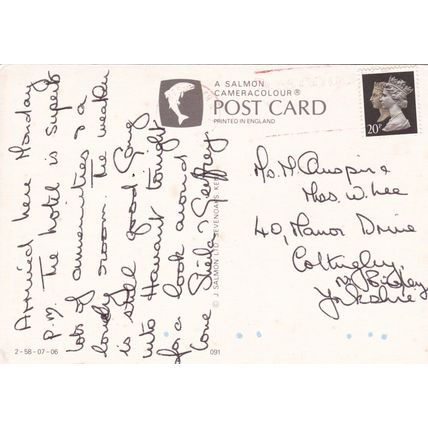 Arrived here Monday
p.m. The hotel is superb
lots of amenities & a
lovely room. The weather
is still good. Going
into Havant tonight
for a look around
Love Sheila & Geoffrey
A SALMON
CAMERACOLOUR®
POST CARD
PRINTED IN ENGLAND
© J SALMON LTD SEVENOAKS KE
20P
Ms. M. &
Mrs. W. Lee
40, Manor Drive
Cottingley
Nr Bingley
Yorkshire
2-58-07-06
091